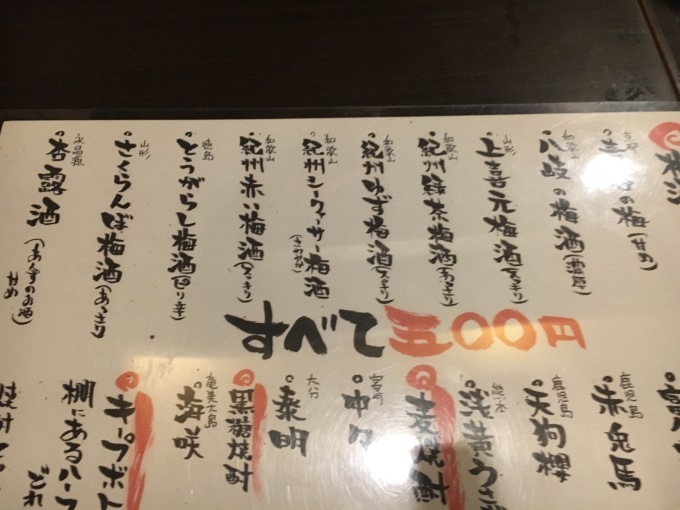 の梅(甘め)
和歌山
八岐の梅酒(濃厚)
山形
上喜元梅酒(スッキリ)
和歌山
紀州緑茶梅酒(あっさり)
和歌山
紀州ゆず梅酒(スッキリ)
和歌山
紀州シークヮーサー梅酒(さわやか)
和歌山
紀州赤い梅酒(スッキリ)
徳島
とうがらし梅酒(ピリ辛)
山形
さくらんば梅酒(あっさり)
永昌源
杏露酒(あんずのお酒)
甘め
すべて五〇〇円
鹿児島
赤兎馬
鹿児島
天狗櫻
熊本
浅黄うさ
麦焼酎
宮崎
中々
大分
泰明
黒糖焼酎
奄美大島の
海咲
キープボト
棚にあるハーフ
どれ
焼酎